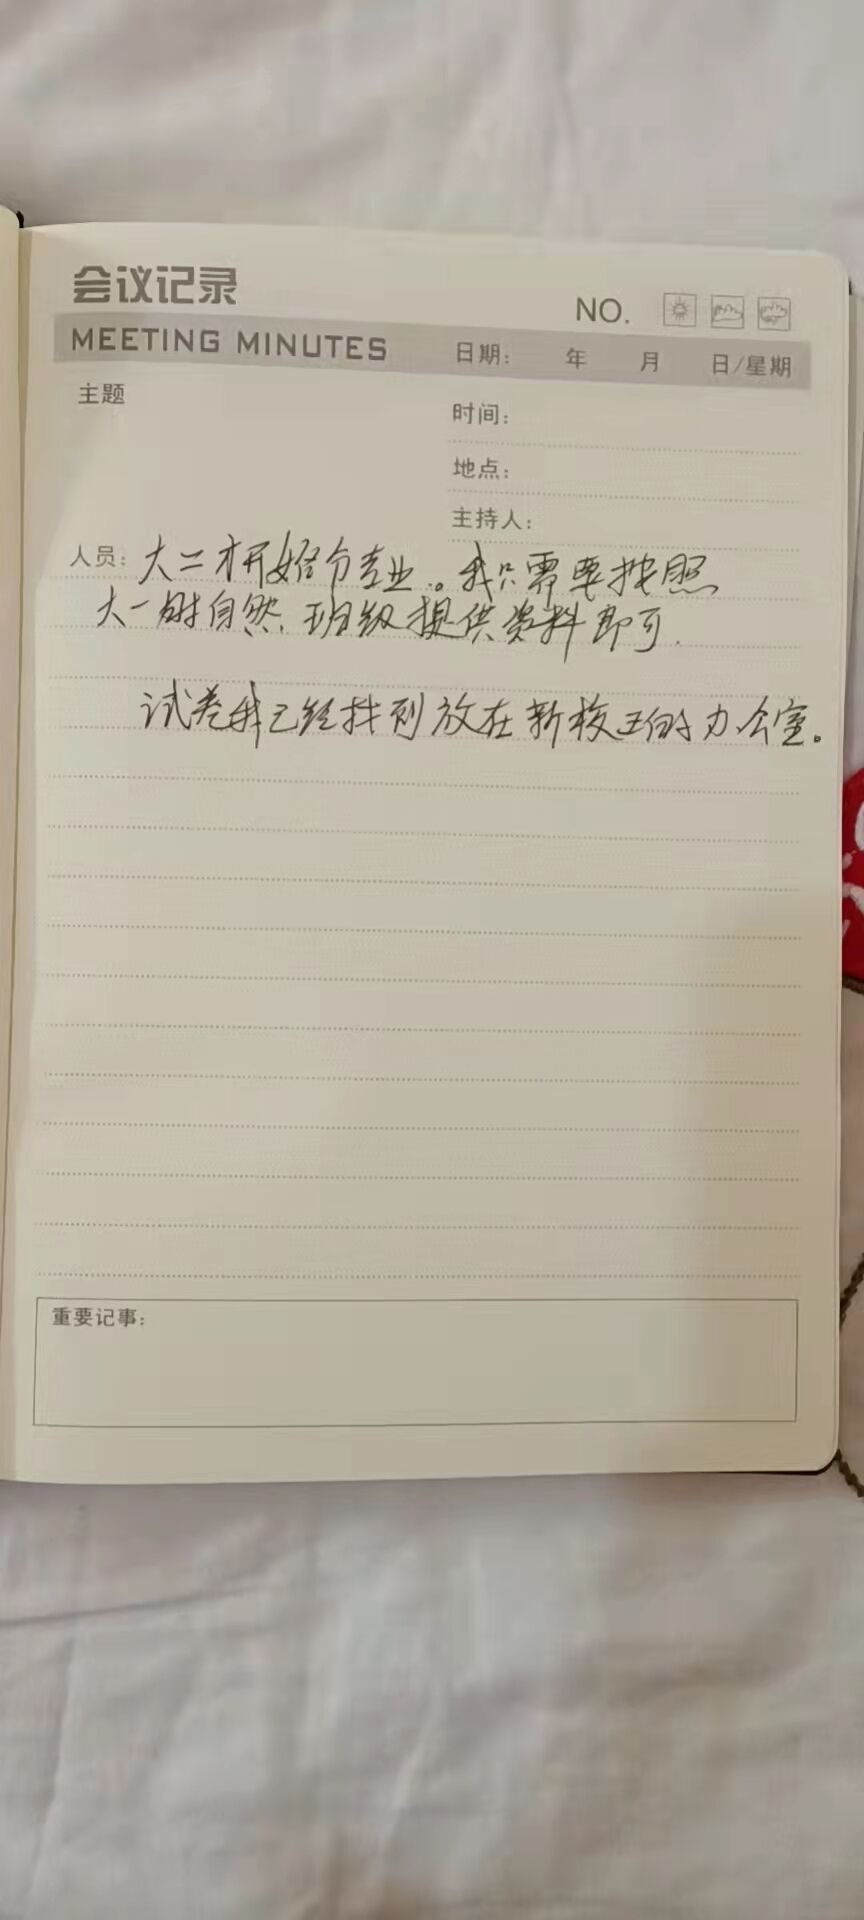 会议记录
NO.
MEETING MINUTES 日期： 年 月 日/星期
主题
时间：
地点：
主持人：
人员：大二才开始分专业。我只需要按照
大一时自然班级提供资料即可.
试卷我已经找到放在新校区的办公室。
重要记事：